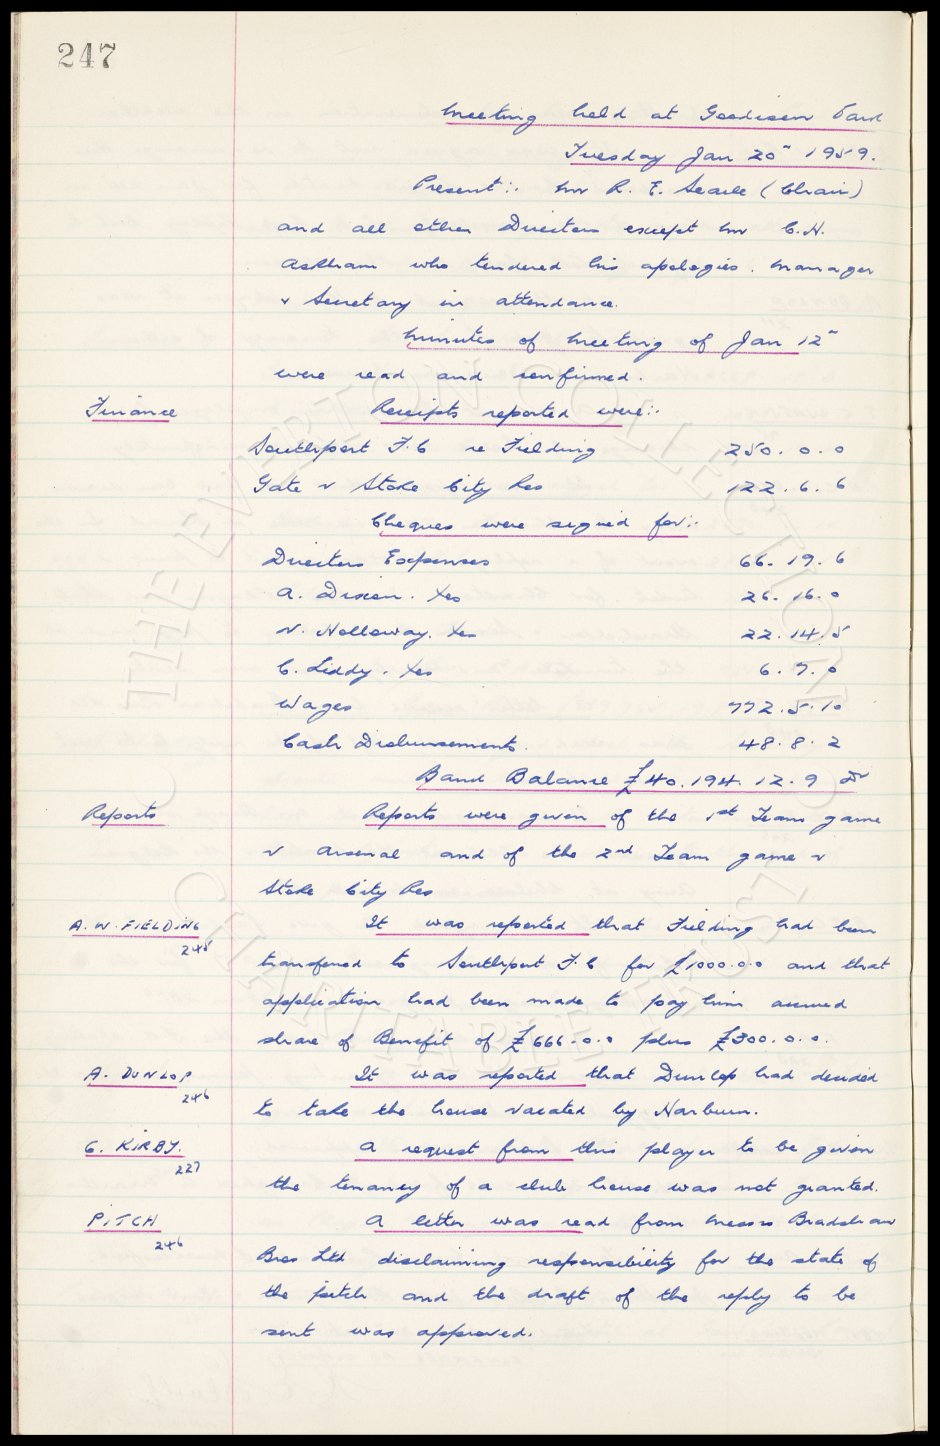 247
Meeting held at Goodison Park
Tuesday Jan 20" 1959.
Present:- Mr R. E. Searle (Chair)
and all other Directors except Mr C. H.
Askham who tendered his apologies. Manager
& Secretary in attendance.
Minutes of Meeting of Jan 12"
were read and confirmed.
Finance Receipts reported were:-
Southport F.C re Fielding 250. 0. 0
Gate v Stoke City Res 122. 6. 6
Cheques were signed for:-
Directors Expenses 66. 19. 6
A. Dixon. 26. 16. 0
V. Holloway. 22. 14. 5
C. Liddy. 6. 7. 0
Wages 772. 5. 10
Cash Disbursements. 48. 8. 2
Bank Balance £40. 194. 12. 9 Dr
Reports Reports were given of the 1st Team game
v Arsenal and of the 2nd Team game v
Stoke City Res
A. W. FIELDING 245 It was reported that Fielding had been
transferred to Southport F.C for £1000.0.0 and that
application had been made to pay him accrued
share of Benefit of £666.0.0 plus £300.0.0.
A. DUNLOP 246 It was reported that Dunlop had decided
to take the house vacated by Harburn.
G. KIRBY. 227 A request from this player to be given
the tenancy of a club house was not granted.
PITCH 246 A letter was read from Messrs Bradshaw
Bros Ltd disclaiming responsibility for the state of
the pitch and the draft of the reply to be
sent was approved.
© THE EVERTON COLLECTION CHARITABLE TRUST ©